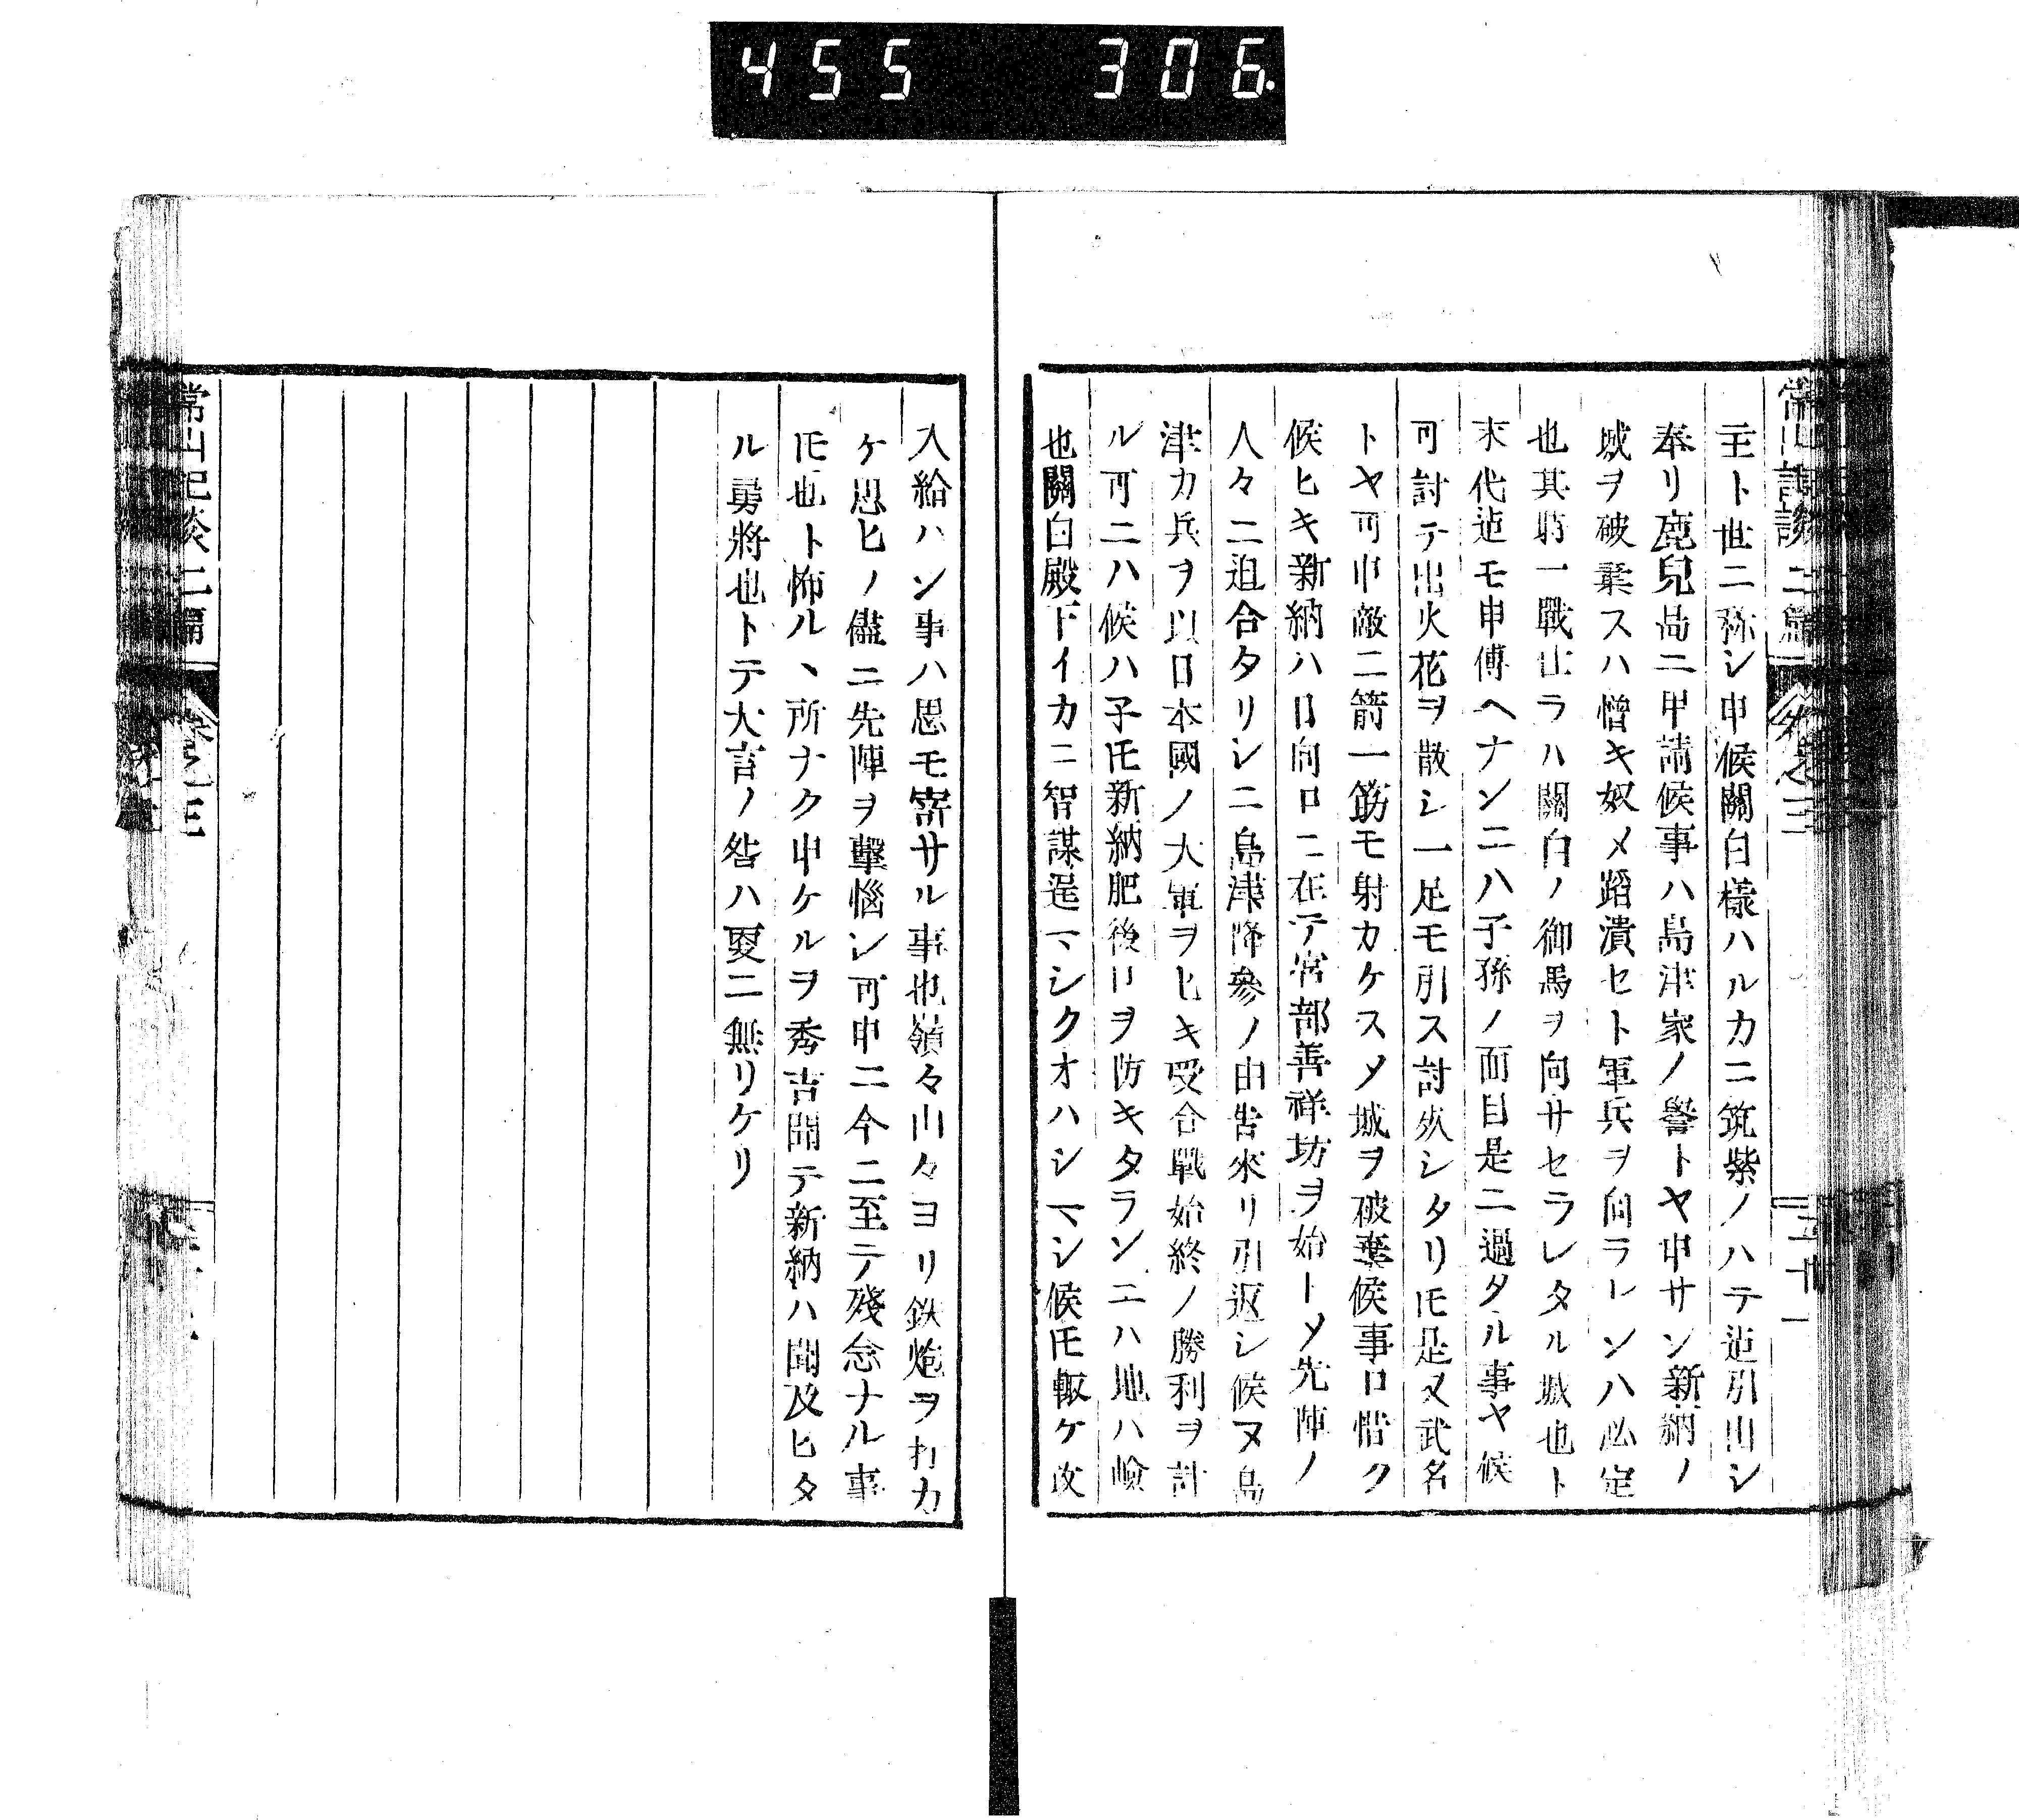 455 306
常山記談二篇 卷之三 二十一
主ト世ニ称シ申候關白樣ハルカニ筑紫ノハテ迠引出シ
奉リ鹿兒島ニ申請候事ハ島津家ノ譽トヤ申サン新納ノ
城ヲ破棄スハ憎キ奴メ蹈潰セト軍兵ヲ向ラレンハ必定
也其時一戰仕ラハ關白ノ御馬ヲ向サセラレタル城也ト
末代迠モ申傳ヘナンニハ子孫ノ面目是ニ過タル事ヤ候
可討テ出火花ヲ散シ一足モ引ス討死シタリ𪜈是又武名
トヤ可申敵ニ箭一筯モ射カケスメ城ヲ破棄候事口惜ク
候ヒキ新納ハ日向口ニ在テ宮部善祥坊ヲ始トメ先陣ノ
人々ニ迫合タリシニ島津降參ノ由告來リ引返シ候ヌ島
津カ兵ヲ以日本國ノ大軍ヲヒキ受合戰始終ノ勝利ヲ計
ル可ニハ候ハ子𪜈新納肥後口ヲ防キタランニハ地ハ嶮
也關白殿下イカニ智謀逞マシクオハシマシ候𪜈輙ケ攻
入給ハン事ハ思モ寄サル事也嶺々山々ヨリ鉄炮ヲ打カ
ケ思ヒノ儘ニ先陣ヲ擊惱シ可申ニ今ニ至テ殘念ナル事
𪜈也ト怖ルヽ所ナク申ケルヲ秀吉聞テ新納ハ聞及ヒタ
ル勇將也トテ大言ノ咎ハ更ニ無リケリ
常山記談二篇 卷之三